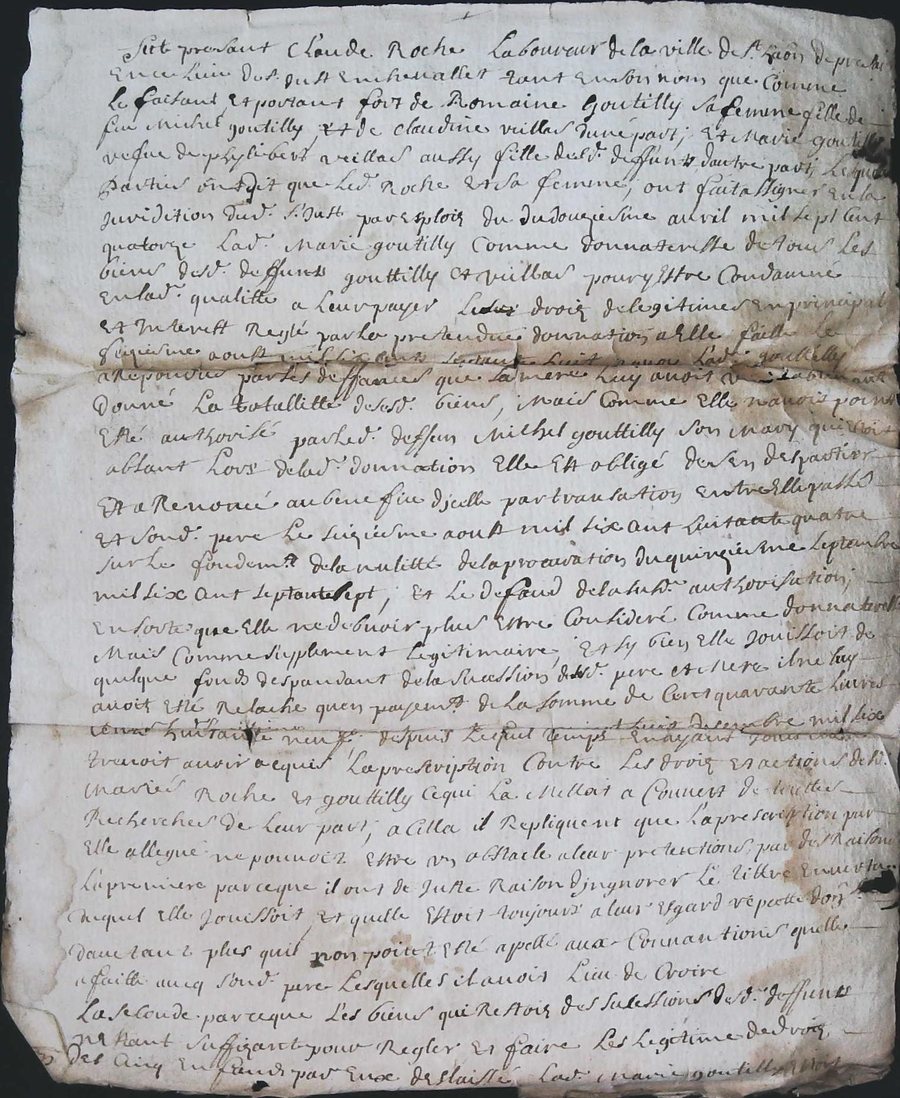 Sut presant Claude Roche Laboureur de la ville de St
En ce Lieu de St Just En chevallet tant En son nom que Comme
Le faisant Et portant fort de Romaine Goutilly sa femme fille de
feu Michel goutilly Et de Claudine veillas d'une part, Et Marie goutilly
vefue de phylibert veillas aussy fille desd. deffunts d'autre part, Lesquels
Parties ont dit que Led. Roche Et sa femme, ont fait assigner En la
Juridition dud. St Just par Exploit du douziesme avril mil sept cent
quatorze Lad. Marie goutilly Comme donnateresse de tous Les
biens desd. deffunts gouttilly Et veillas pour y Estre Condamné
En lad. qualitte a Leur payer droit de legitimes En principal
Et Interest Reglé par La pretendue donnation a Elle faitte Le
sixiesme aoust mil six cent septante huit a quoy Lad. gouttelly
a Repondus par Les deffances que sa mere Luy avoit
Donné La totallitte desd. biens, Mais Comme Elle n'avoit point
Esté authorisé par Led. deffun Michel gouttilly son mary qui Estoit
absant Lors de lad. donnation Elle Est obligé de s'en despartir
Et a Renoncé au benefice d'jcelle par transation Entre Elle passé
Et sond. pere Le sixiesme aoust mil six cent huitante quatre
sur Le fondemt de la nulitté de la procuration du quinziesme septembre
mil six cent septante sept, Et Le defaud de la susd. authorisation,
En sorte que Elle ne debvoir plus Estre Consideré Comme donnateresse
Mais Comme supplement Legitimaire, Et sy bien Elle Jouissoit de
quelque fond despandant de la sucession desd. pere et Mere il ne luy
avoit Esté Relaché qu'en payemt de La somme de Cent quarante Livres
huitante neuf, despuis Lequel temps
Elle avoir acquis La prescription Contre Les droits et actions desd.
Mariés Roche Et gouttilly Ce qui La Mettoit a Couvert de touttes
Recherches de Leur part, a Cella il Repliquent que La prescription par
Elle allegué ne pouvoit Estre un obstacle a leur pretentions par des Raisons
La premiere parceque il ont de Juste Raison d'jngnorer Le tiltre En vertu
Duquel Elle Jouissoit, Et quelle Estoit toujours a leur Esgard reputee
Dautant plus quil n'on point Esté apellé aux Convantions quelle
a faitte avecq sond. pere Lesquelles il avoit Lieu de Croire
La seconde parceque Les biens qui Restois des sucessions desd. deffunts
n'estant suffizant pour Regler Et faire Les Legitime de droit
des Cinq Enfands par Eux deslaissé Lad. Marie goutilly